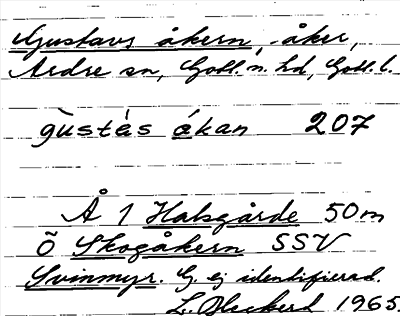 Gustavs åkern, åker,
Ardre sn, Gotl. n. hd, Gotl. l.
gùstás ákan 207
Å 1 Halsgårde 50 m
Ö Skogåkern SSV
Svinmyr. G. ej identifierad.
L. Bleckerd 1965.